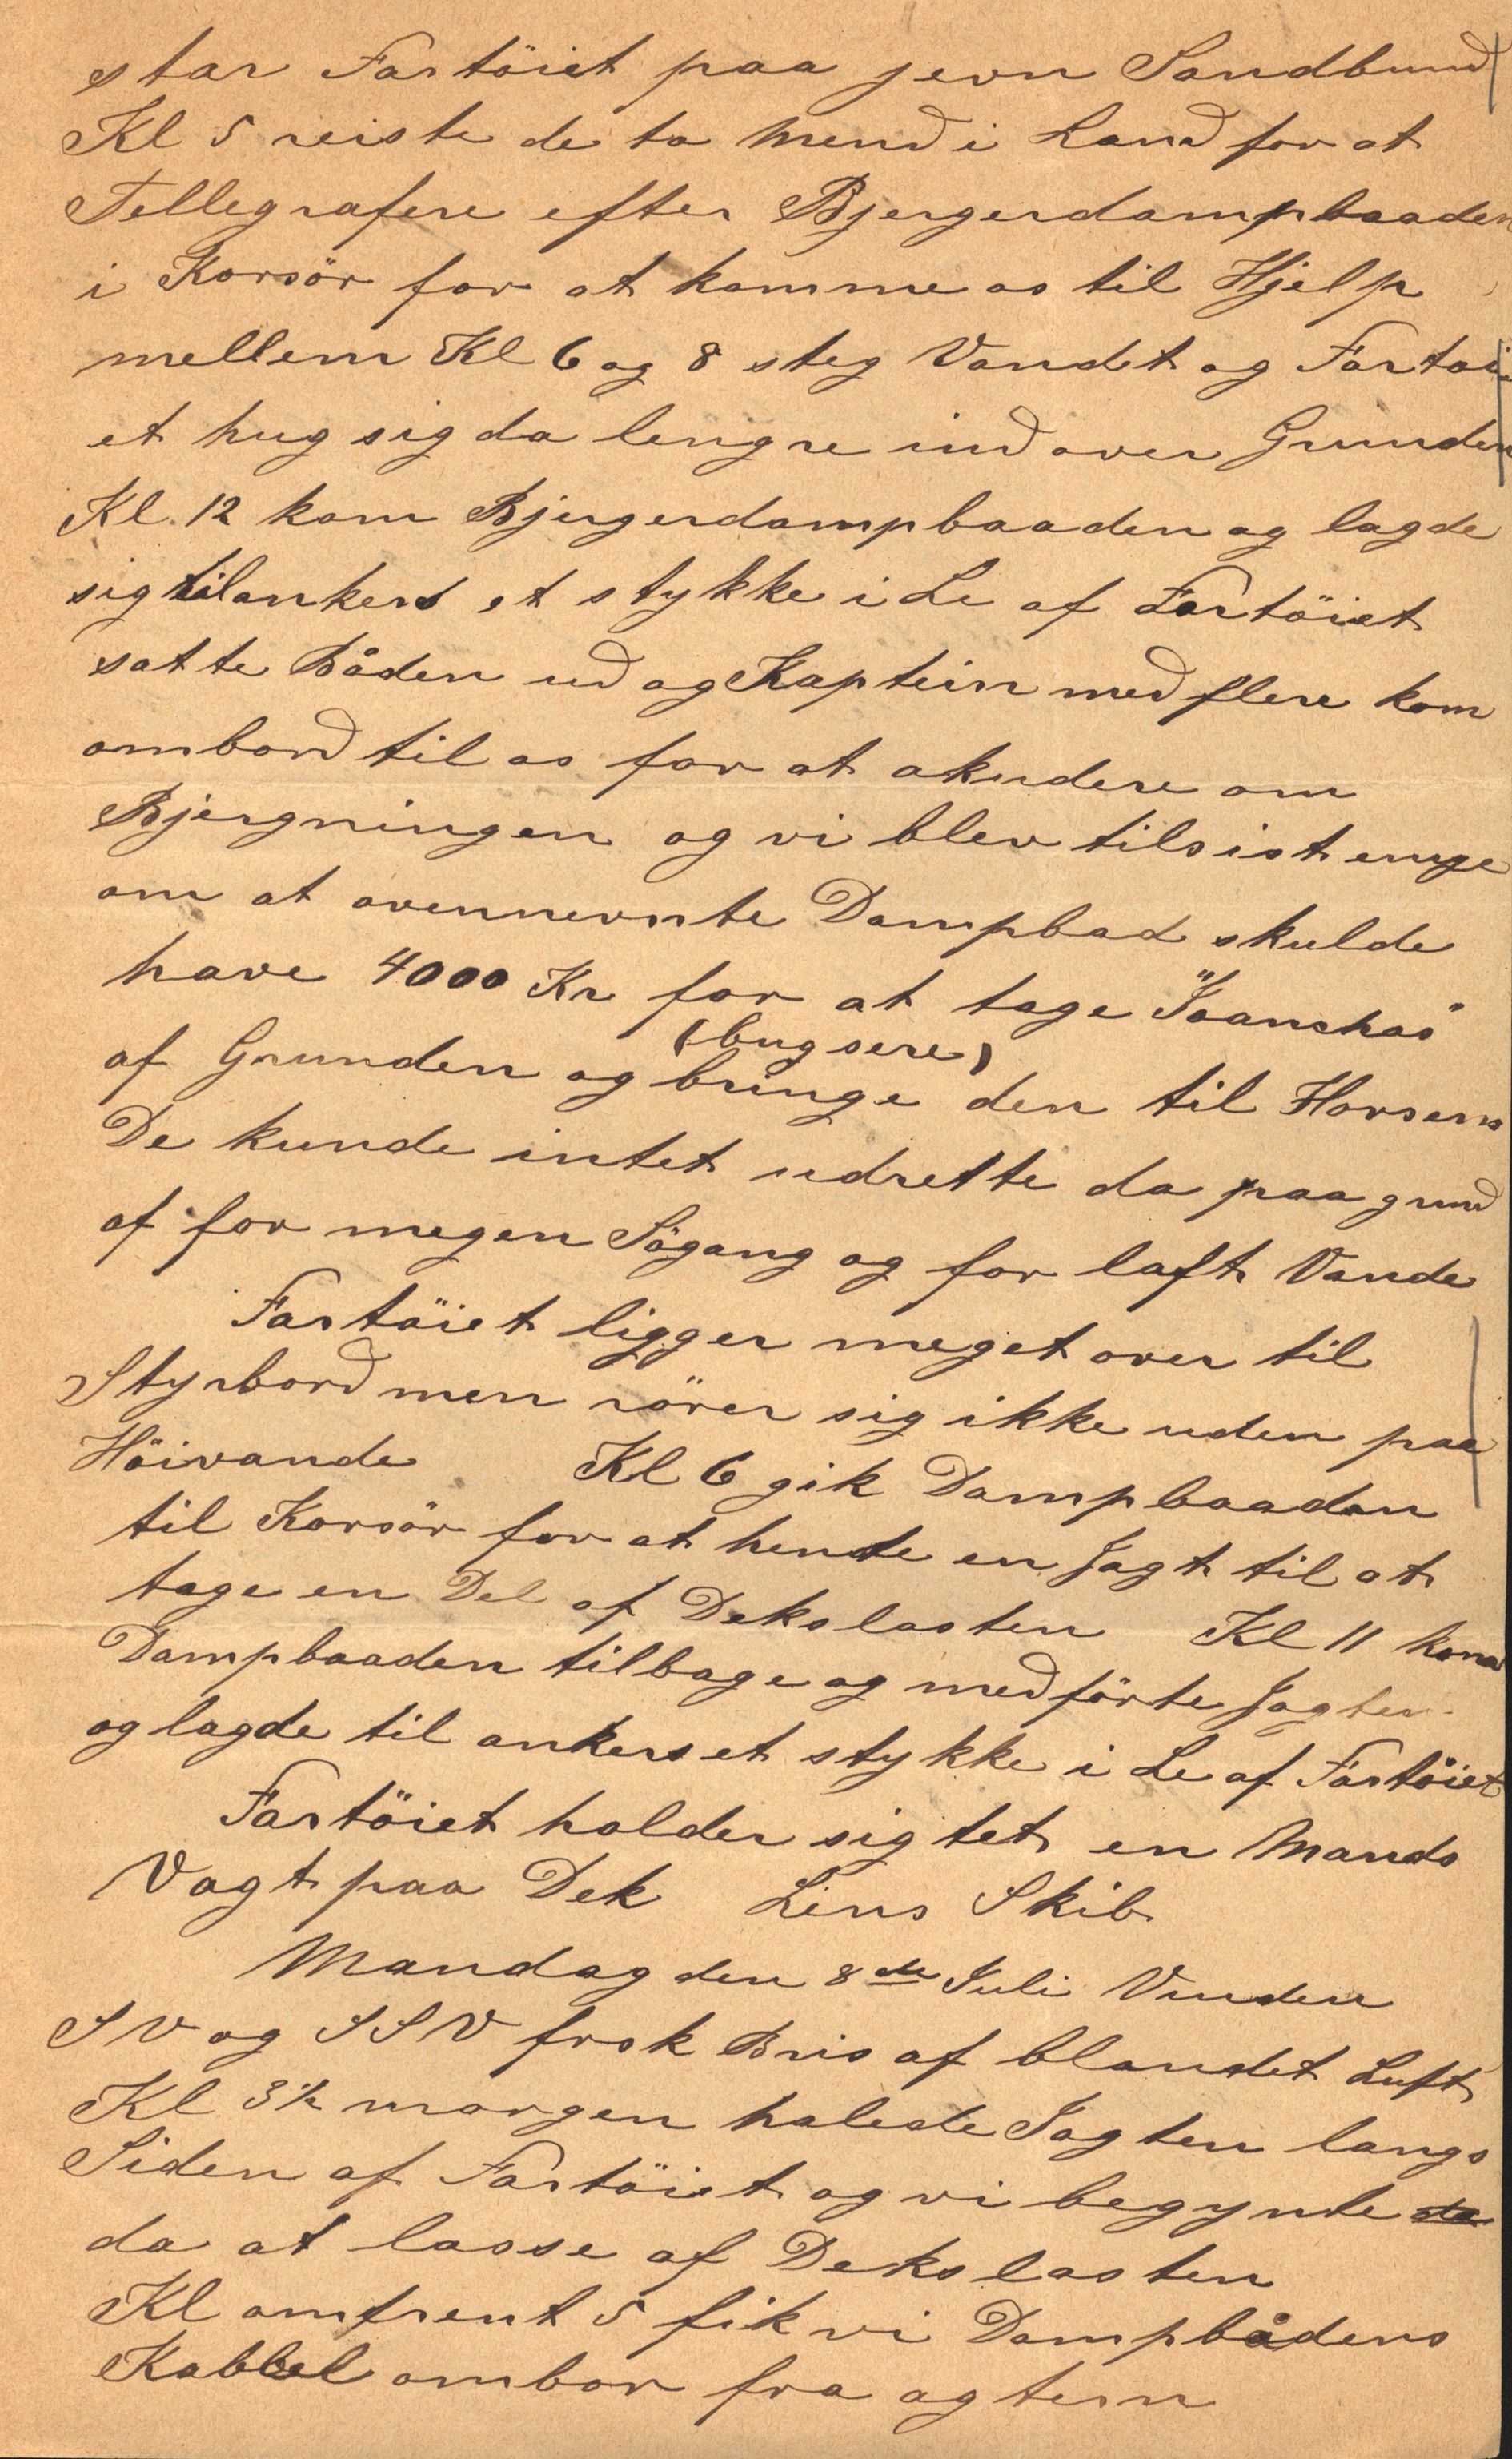 star Fartöiet paa jevn Sandbund
Kl 5 reiste de to Mend i Land for at
Tellegrafere efter Bjergerdampbaaden
i Korsör for at komme os til Hjelp
mellem Kl 6 og 8 steg Vandet og Fartöi
et hug sig da lengre ind over Grunden
Kl. 12 kom Bjergerdampbaaden og lagde
sig tilankers et stykke i Le af Fartöiet
satte Båden ud og Kaptein med flere kom
ombord til os for at akudere om
Bjergningen og vi blev tilsist enige
om at ovennevnte Dampbad skulde
have 4000 Kr for at tage "Joanchas"
(bugsere)
af Grunden og bringe den til Horsens
De kunde intet udrette da paa grund
af for megen Sögang og for laft Vande
Fartöiet ligger meget over til
Styrbord men rörer sig ikke uden paa
Höivande Kl 6 gik Dampbaaden
til Korsör for at hente en Jagt til at
tage en Del af Dekslasten Kl 11 kom
Dampbaaden tilbage og medförte Jagten
og lagde til ankers et stykke i Le af Fartöiet
Fartöiet holder sig tet en Mands
Vagt paa Dek Lens Skib
Mandag den 8de Juli Vinden
SV og SSV frsk Bris af blandet Luft
Kl 3½ morgen halede Jagten langs
Siden af Fartöiet og vi begynte
da at losse af Dekslasten
Kl omtrent 5 fik vi Dampbådens
Kabbel ombor fra agtern